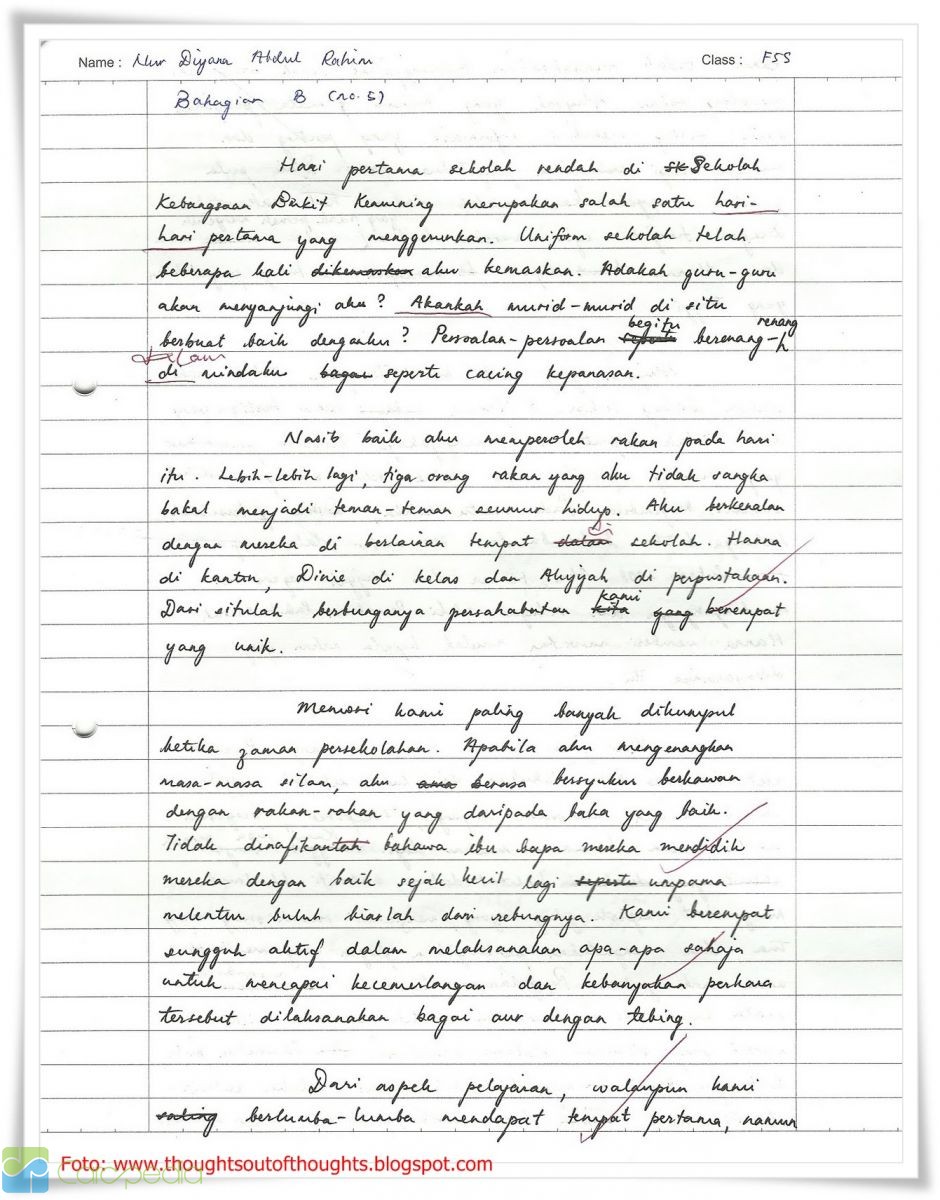 Name : Nur Diyana Abdul Rahim Class : F5S
Bahagian B (no. 5)
Hari pertama sekolah rendah di sk Sekolah
Kebangsaan Bukit Kemuning merupakan salah satu hari-
hari pertama yang menggerunkan. Uniform sekolah telah
beberapa kali dikemaskan aku kemaskan. Adakah guru-guru
akan menyanjungi aku? Akankah murid-murid di situ
berbuat baik denganku? Persoalan-persoalan seperti begitu berenang-renang
dalam
di mindaku bagai seperti cacing kepanasan.
Nasib baik aku memperoleh rakan pada hari
itu. Lebih-lebih lagi, tiga orang rakan yang aku tidak sangka
bakal menjadi teman-teman seumur hidup. Aku berkenalan
dengan mereka di berlainan tempat dalam di sekolah. Hanna
di kantin, Dinie di kelas dan Aliyyah di perpustakaan.
Dari situlah berbunganya persahabatan kita kami yang berempat
yang unik.
Memori kami paling banyak dikumpul
ketika zaman persekolahan. Apabila aku mengenangkan
masa-masa silam, aku berasa bersyukur berkawan
dengan rakan-rakan yang daripada baka yang baik.
Tidak dinafikantah bahawa ibu bapa mereka mendidik
mereka dengan baik sejak kecil lagi seperti umpama
melentur buluh biarlah dari rebungnya. Kami berempat
sungguh aktif dalam melaksanakan apa-apa sahaja
untuk mencapai kecemerlangan dan kebanyakan perkara
tersebut dilaksanakan bagai aur dengan tebing.
Dari aspek pelajaran, walaupun kami
saling berlumba-lumba mendapat tempat pertama, namun
Foto: www.thoughtsoutofthoughts.blogspot.com